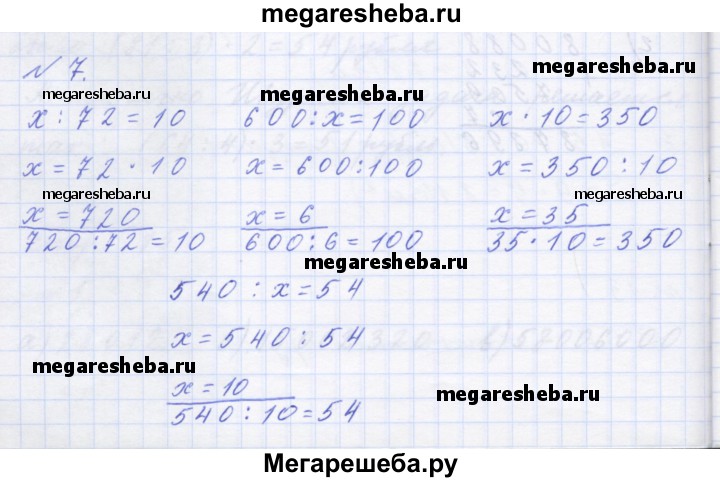 megaresheba.ru
№ 7.
megaresheba.ru megaresheba.ru megaresheba.ru
x : 72 = 10 600 : x = 100 x · 10 = 350
x = 72 · 10 x = 600 : 100 x = 350 : 10
megaresheba.ru megaresheba.ru megaresheba.ru
x = 720 x = 6 x = 35
720 : 72 = 10 600 : 6 = 100 35 · 10 = 350
megaresheba.ru
540 : x = 54
x = 540 : 54
megaresheba.ru megaresheba.ru
x = 10
540 : 10 = 54
Мегарешеба.ру